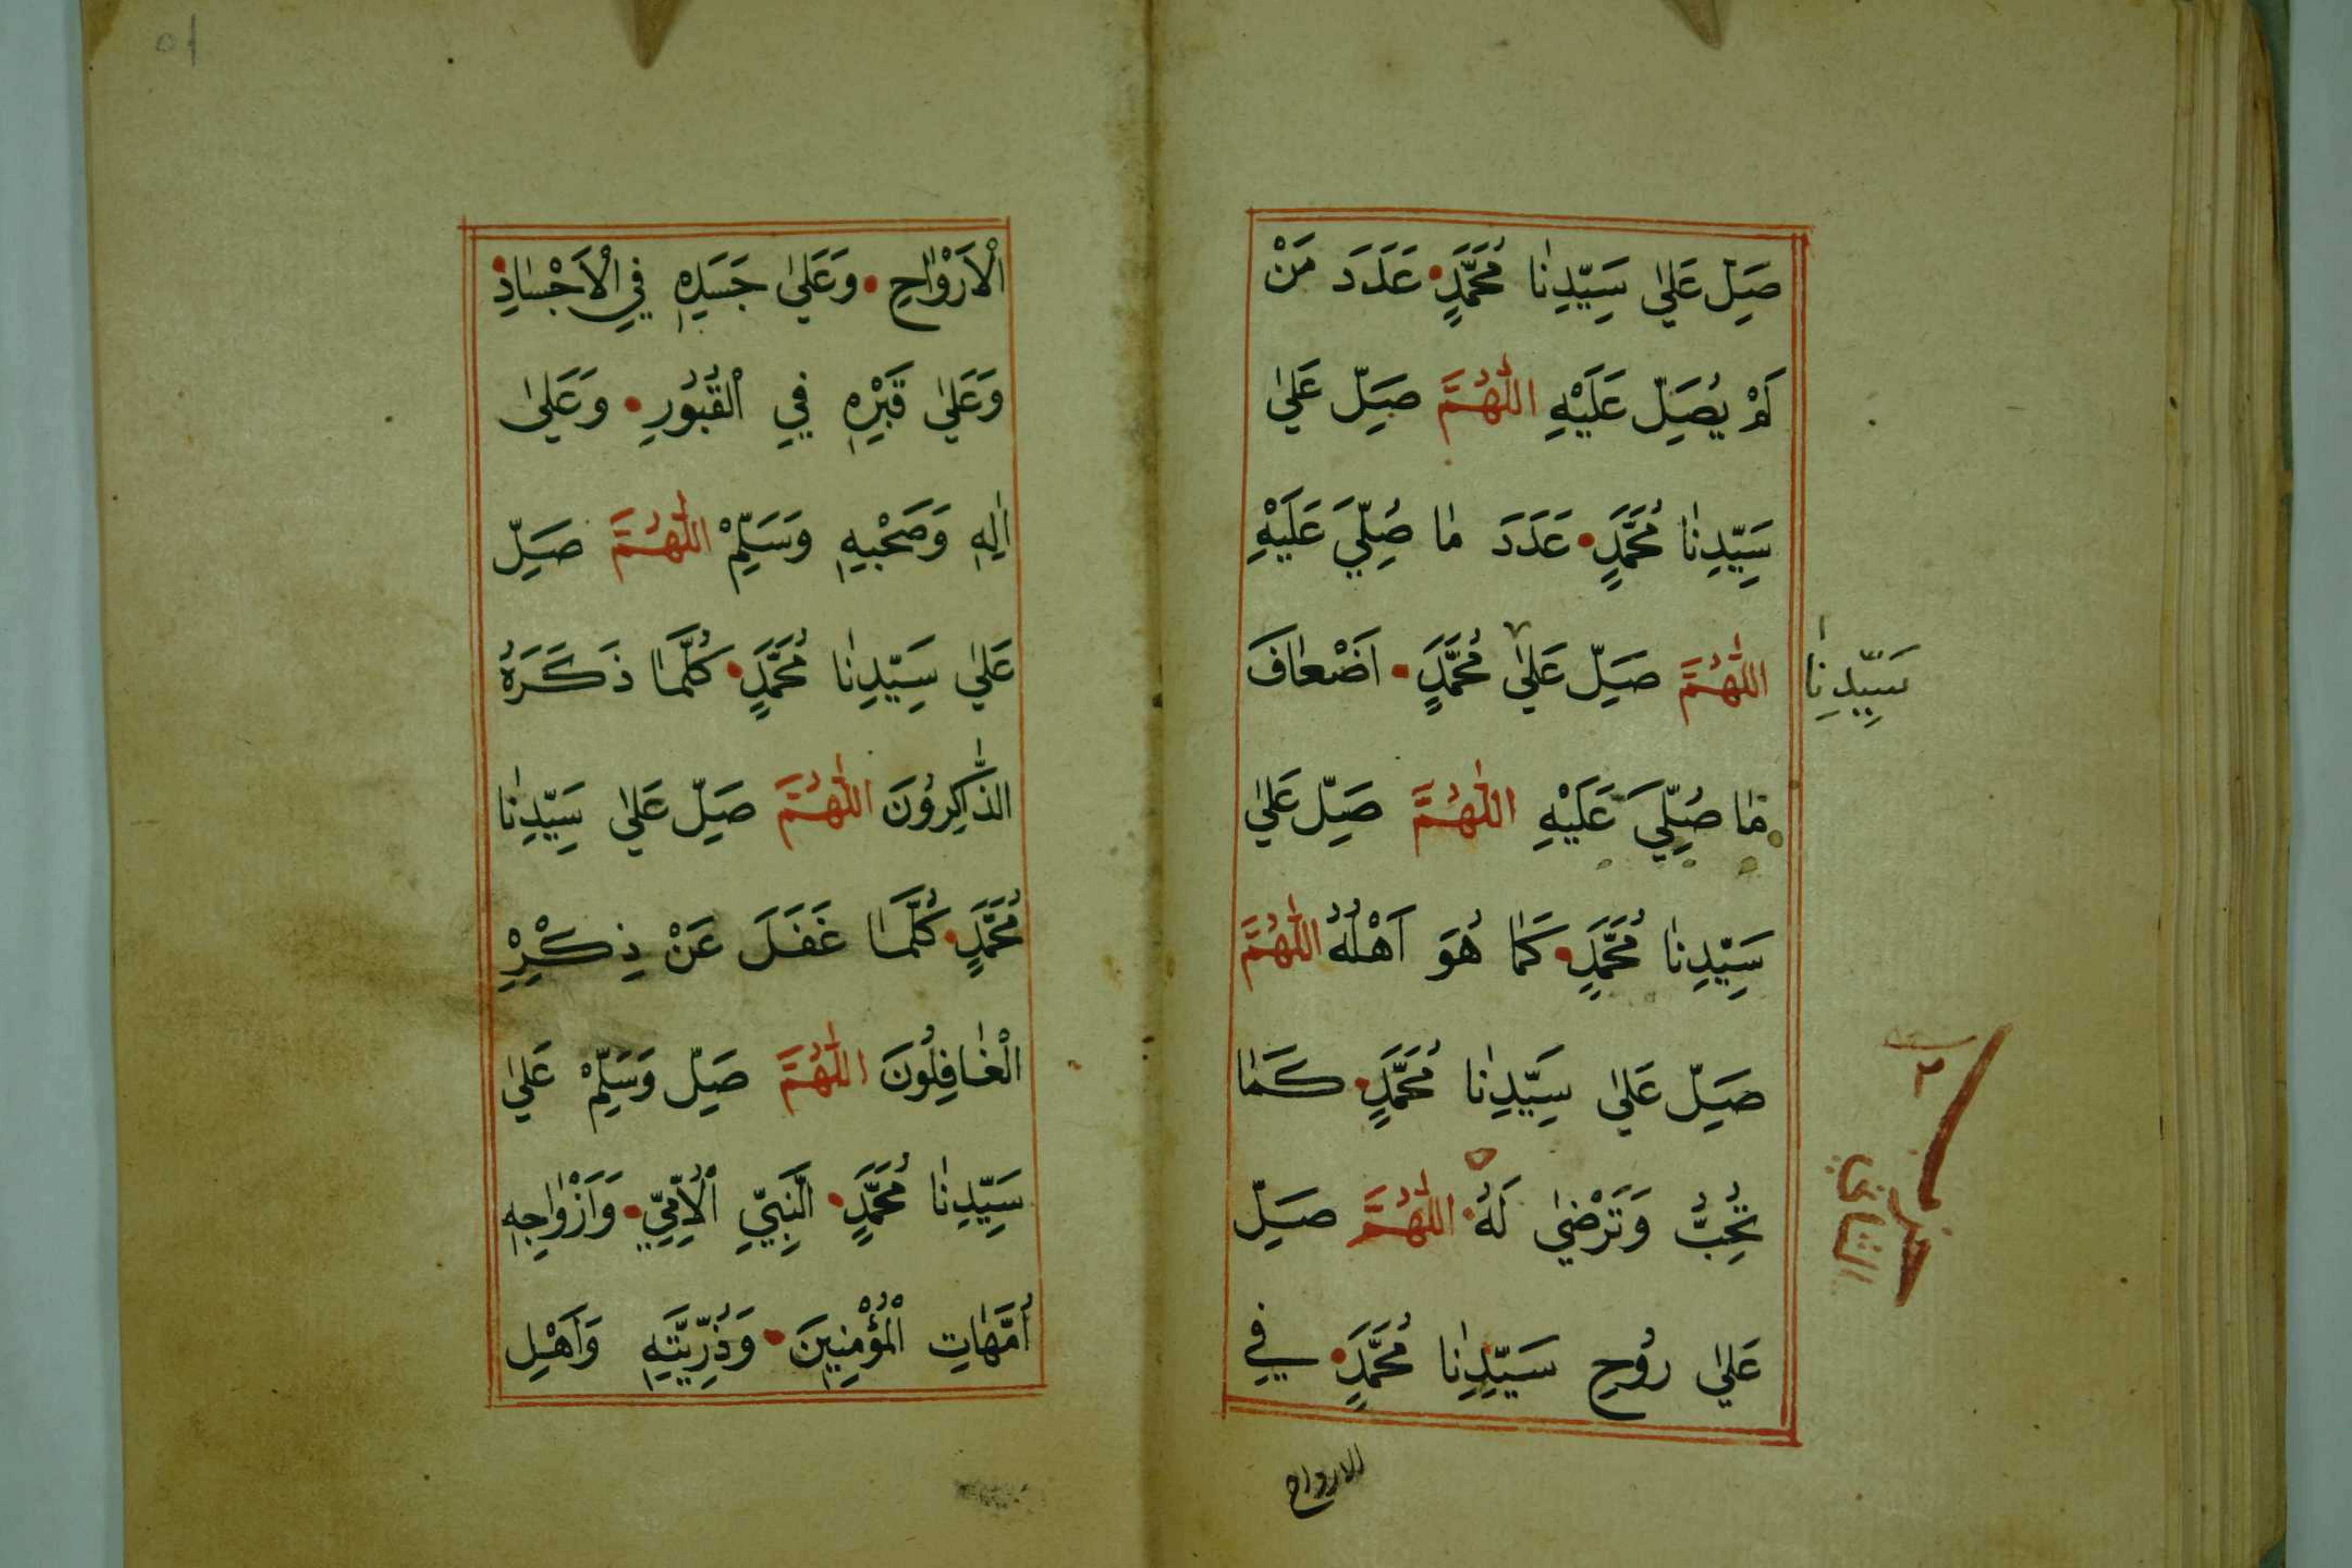 صَلِّ عَلٰى سَيِّدِنَا مُحَمَّدٍ عَدَدَ مَنْ
لَمْ يُصَلِّ عَلَيْهِ اللّٰهُمَّ صَلِّ عَلٰى
سَيِّدِنَا مُحَمَّدٍ عَدَدَ مَا صُلِّيَ عَلَيْهِ
اللّٰهُمَّ صَلِّ عَلٰى مُحَمَّدٍ اَضْعَافَ
سَيِّدِنَا
مَا صُلِّيَ عَلَيْهِ اللّٰهُمَّ صَلِّ عَلٰى
سَيِّدِنَا مُحَمَّدٍ كَمَا هُوَ اَهْلُهُ اللّٰهُمَّ
صَلِّ عَلٰى سَيِّدِنَا مُحَمَّدٍ كَمَا
تُحِبُّ وَتَرْضٰى لَهُ اللّٰهُمَّ صَلِّ
عَلٰى رُوْحِ سَيِّدِنَا مُحَمَّدٍ فِي
الارواح
الْاَرْوَاحِ وَعَلٰى جَسَدِهِ فِي الْاَجْسَادِ
وَعَلٰى قَبْرِهِ فِي الْقُبُوْرِ وَعَلٰى
اٰلِهِ وَصَحْبِهِ وَسَلِّمْ اللّٰهُمَّ صَلِّ
عَلٰى سَيِّدِنَا مُحَمَّدٍ كُلَّمَا ذَكَرَهُ
الذَّاكِرُوْنَ اللّٰهُمَّ صَلِّ عَلٰى سَيِّدِنَا
مُحَمَّدٍ كُلَّمَا غَفَلَ عَنْ ذِكْرِهِ
الْغَافِلُوْنَ اللّٰهُمَّ صَلِّ وَسَلِّمْ عَلٰى
سَيِّدِنَا مُحَمَّدٍ النَّبِيِّ الْاُمِّيِّ وَاَزْوَاجِهِ
اُمَّهَاتِ الْمُؤْمِنِيْنَ وَذُرِّيَّتِهِ وَاَهْلِ